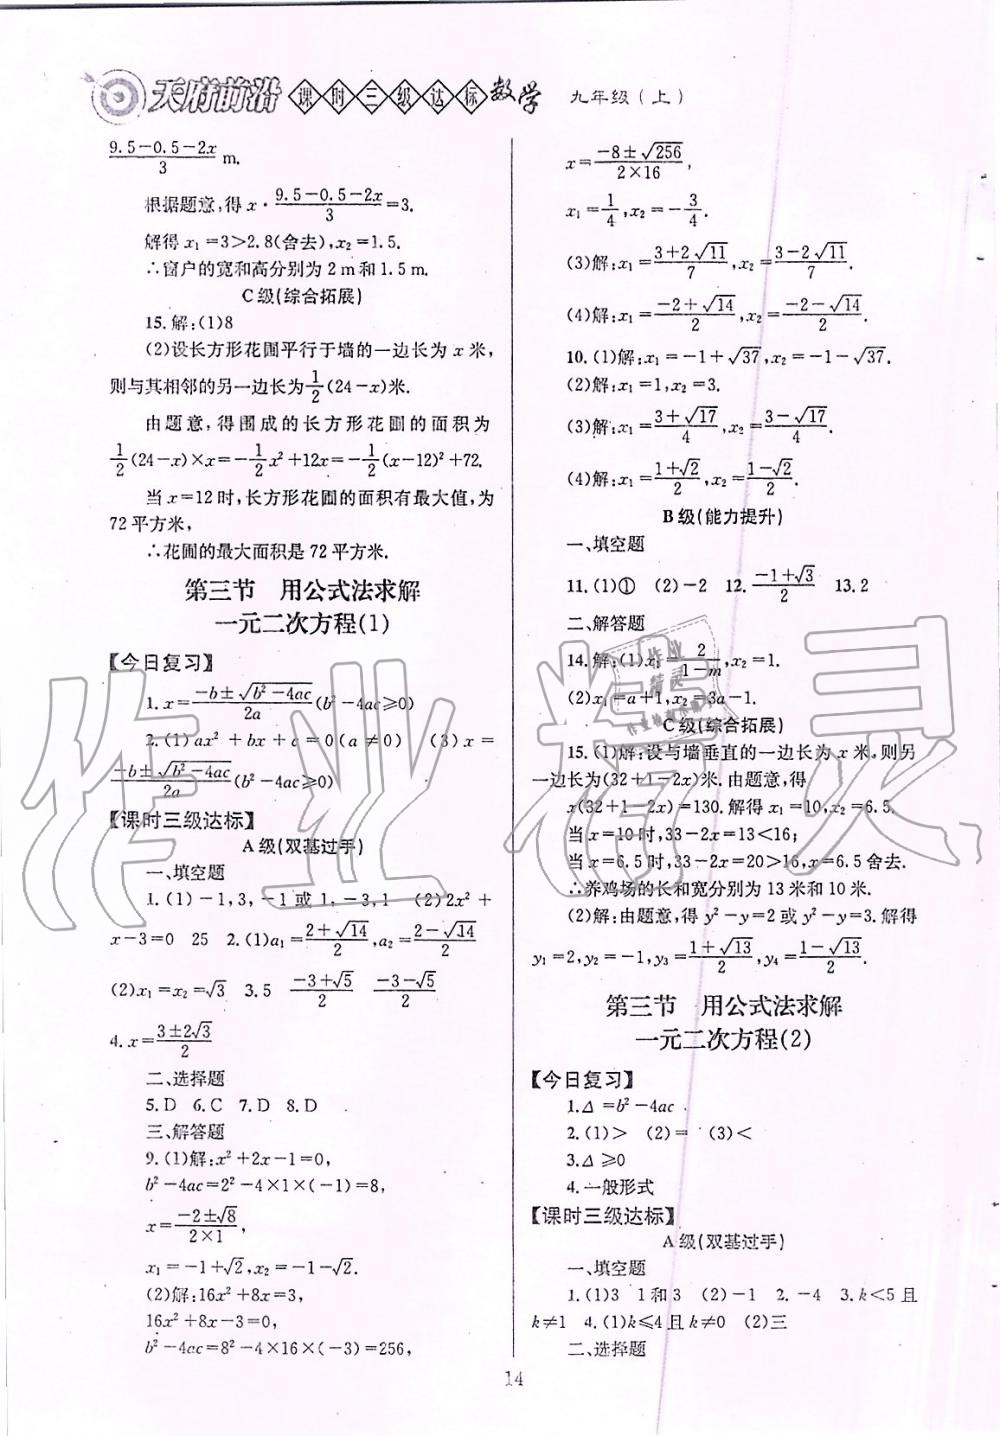 天府前沿 课时三级达标 数学 九年级(上)
(9.5-0.5-2x)/3 m.
根据题意,得 x·(9.5-0.5-2x)/3=3.
解得 x₁=3>2.8(舍去),x₂=1.5.
∴窗户的宽和高分别为 2 m和 1.5 m.
C级(综合拓展)
15.解:(1)8
(2)设长方形花圃平行于墙的一边长为 x 米,
则与其相邻的另一边长为1/2(24-x)米.
由题意,得围成的长方形花圃的面积为
1/2(24-x)×x=-1/2x²+12x=-1/2(x-12)²+72.
当 x=12 时,长方形花圃的面积有最大值,为
72 平方米,
∴花圃的最大面积是 72 平方米.
第三节 用公式法求解
一元二次方程(1)
【今日复习】
1.x=(-b±√(b²-4ac))/2a(b²-4ac≥0)
2.(1)ax²+bx+c=0(a≠0) (3)x=
(-b±√(b²-4ac))/2a(b²-4ac≥0)
【课时三级达标】
A级(双基过手)
一、填空题
1.(1)-1,3,-1 或 1,-3,1 (2)2x²+
x-3=0 25 2.(1)a₁=(2+√14)/2,a₂=(2-√14)/2
(2)x₁=x₂=√3 3.5 (-3+√5)/2 (-3-√5)/2
4.x=(3±2√3)/2
二、选择题
5.D 6.C 7.D 8.D
三、解答题
9.(1)解:x²+2x-1=0,
b²-4ac=2²-4×1×(-1)=8,
x=(-2±√8)/(2×1),
x₁=-1+√2,x₂=-1-√2.
(2)解:16x²+8x=3,
16x²+8x-3=0,
b²-4ac=8²-4×16×(-3)=256,
x=(-8±√256)/(2×16),
x₁=1/4,x₂=-3/4.
(3)解:x₁=(3+2√11)/7,x₂=(3-2√11)/7.
(4)解:x₁=(-2+√14)/2,x₂=(-2-√14)/2.
10.(1)解:x₁=-1+√37,x₂=-1-√37.
(2)解:x₁=1,x₂=3.
(3)解:x₁=(3+√17)/4,x₂=(3-√17)/4.
(4)解:x₁=(1+√2)/2,x₂=(1-√2)/2.
B级(能力提升)
一、填空题
11.(1)① (2)-2 12.(-1+√3)/2 13.2
二、解答题
14.解:(1)x₁=2/(1-m),x₂=1.
(2)x₁=a+1,x₂=3a-1.
C级(综合拓展)
15.(1)解:设与墙垂直的一边长为 x 米,则另
一边长为(32+1-2x)米.由题意,得
x(32+1-2x)=130.解得 x₁=10,x₂=6.5.
当 x=10 时,33-2x=13<16;
当 x=6.5 时,33-2x=20>16,x=6.5 舍去.
∴养鸡场的长和宽分别为 13 米和 10 米.
(2)解:由题意,得 y²-y=2 或 y²-y=3.解得
y₁=2,y₂=-1,y₃=(1+√13)/2,y₄=(1-√13)/2.
第三节 用公式法求解
一元二次方程(2)
【今日复习】
1.Δ=b²-4ac
2.(1)> (2)= (3)<
3.Δ≥0
4.一般形式
【课时三级达标】
A级(双基过手)
一、填空题
1.(1)3 1和3 (2)-1 2.-4 3.k<5 且
k≠1 4.(1)k≤4 且 k≠0 (2)三
二、选择题
14
作业精灵